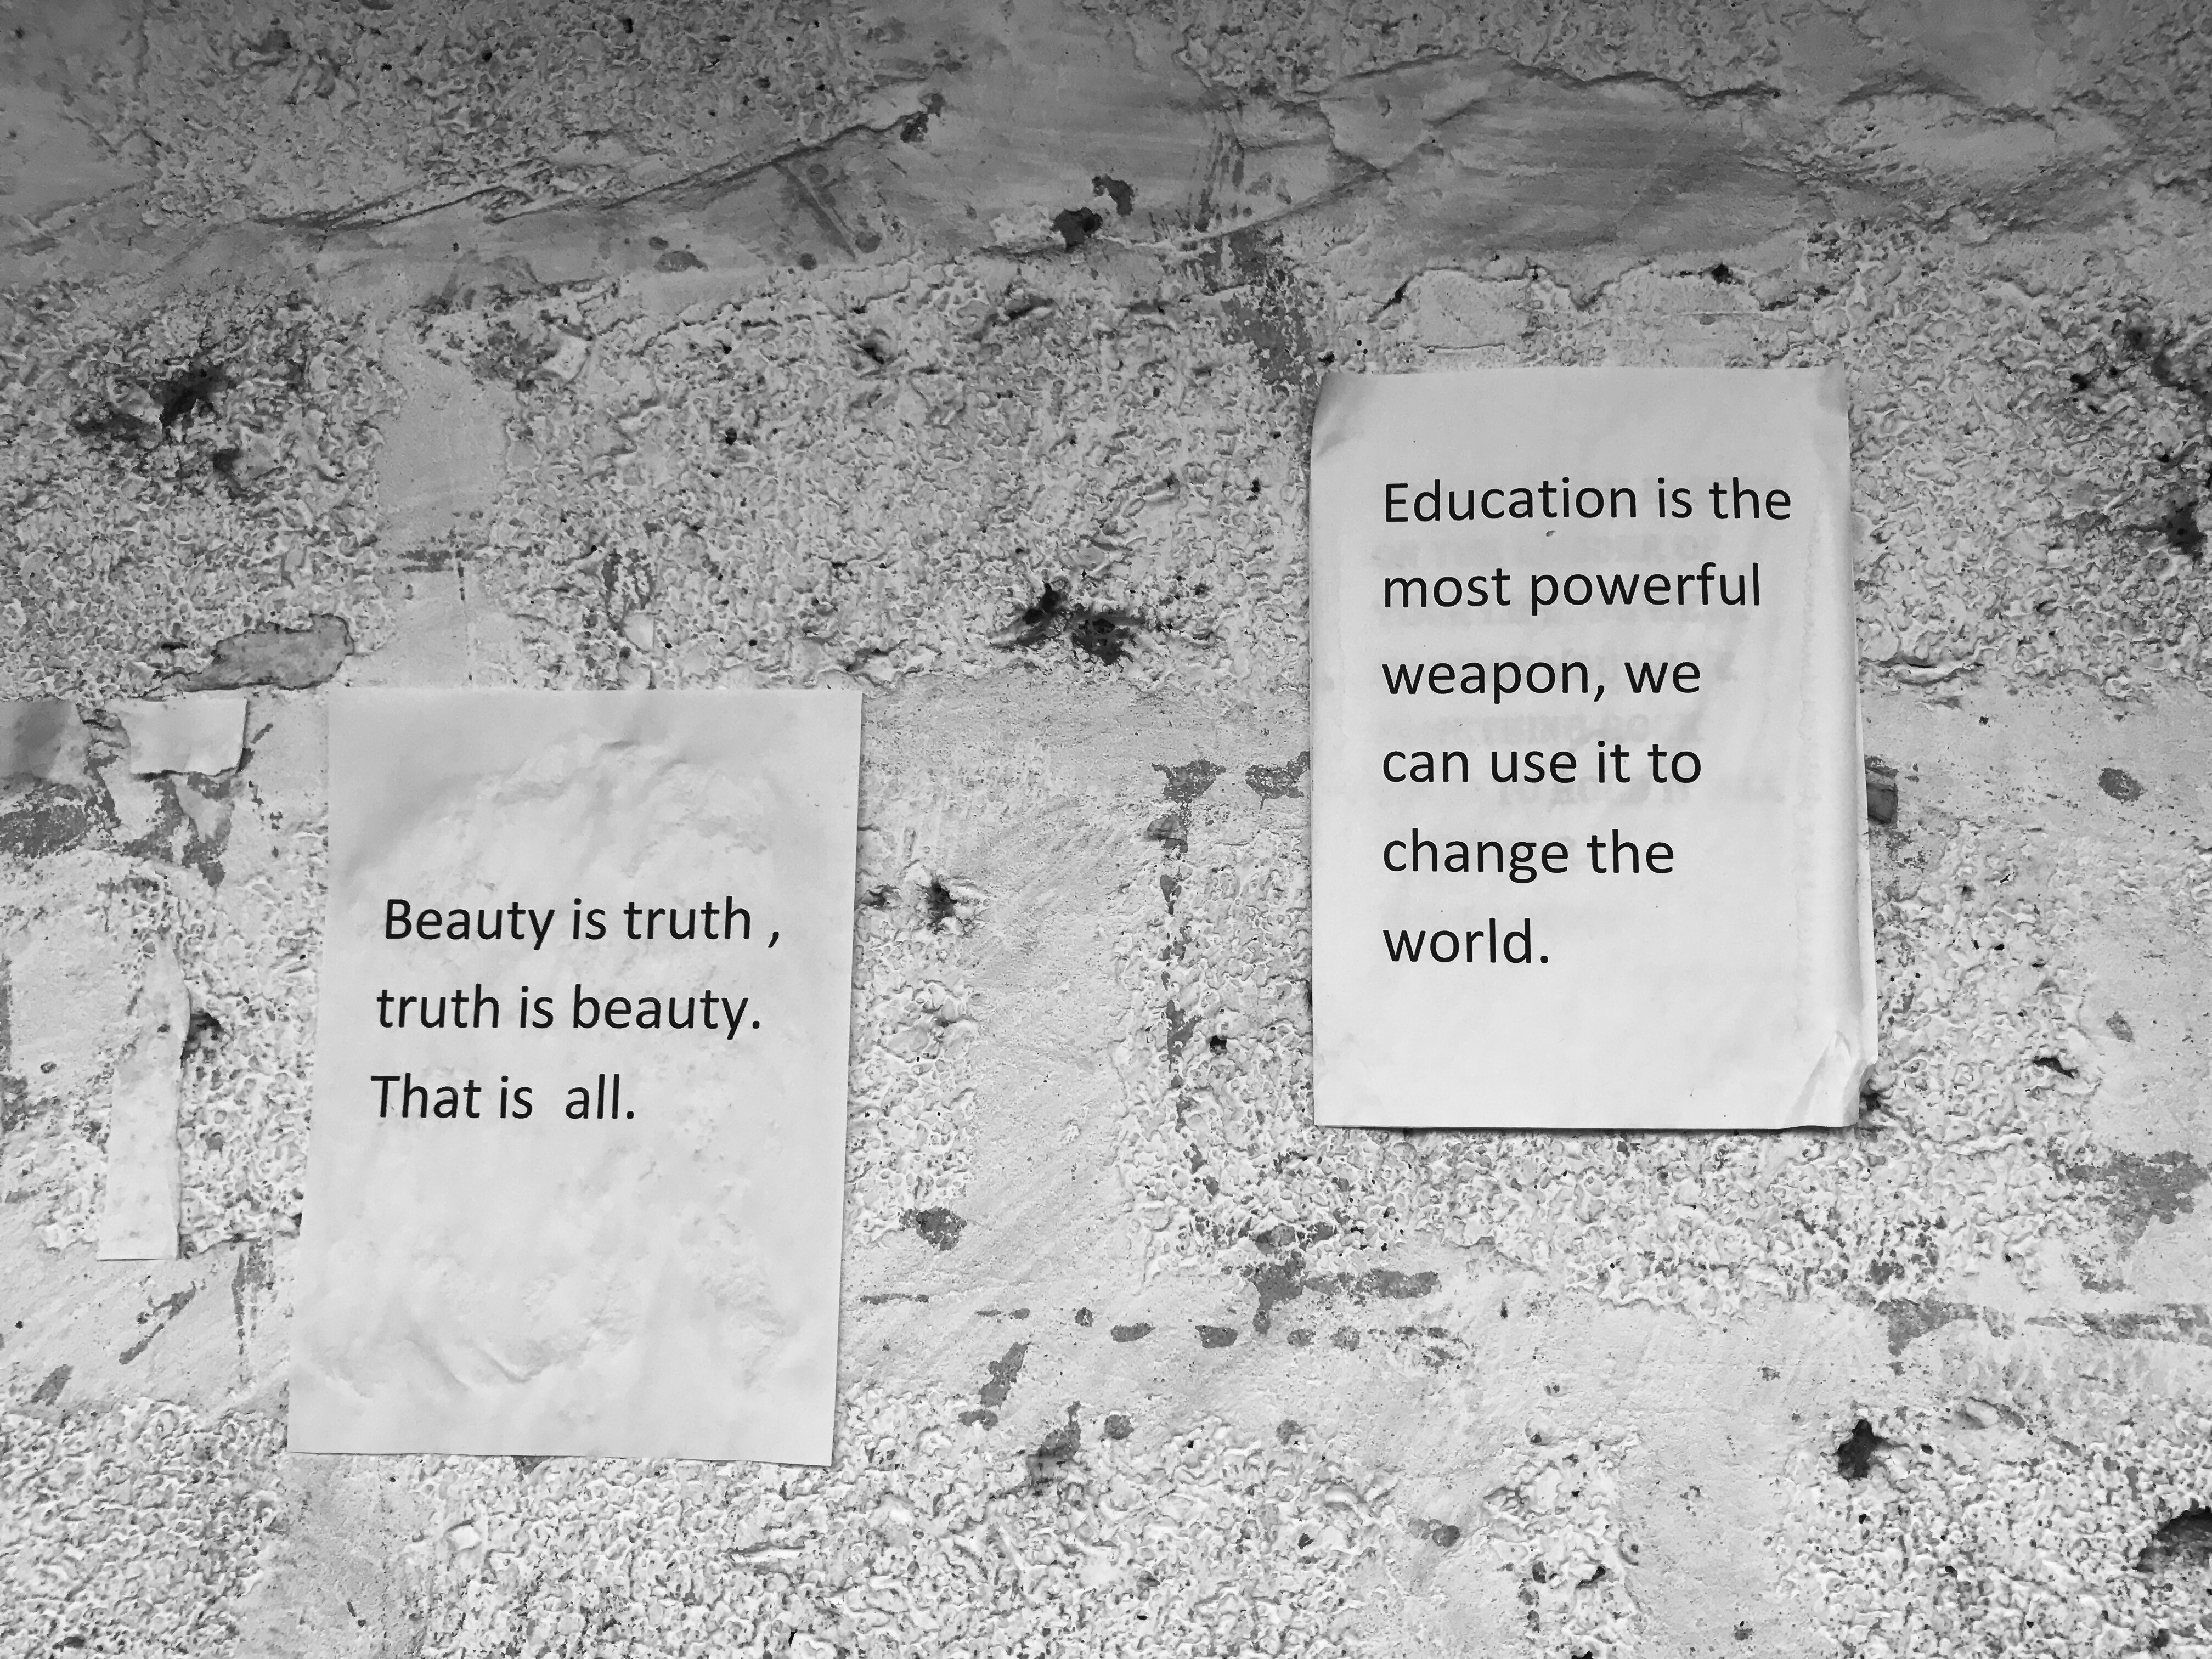 Beauty is truth ,
truth is beauty.
That is  all.
Education is the
most powerful
weapon, we
can use it to
change the
world.